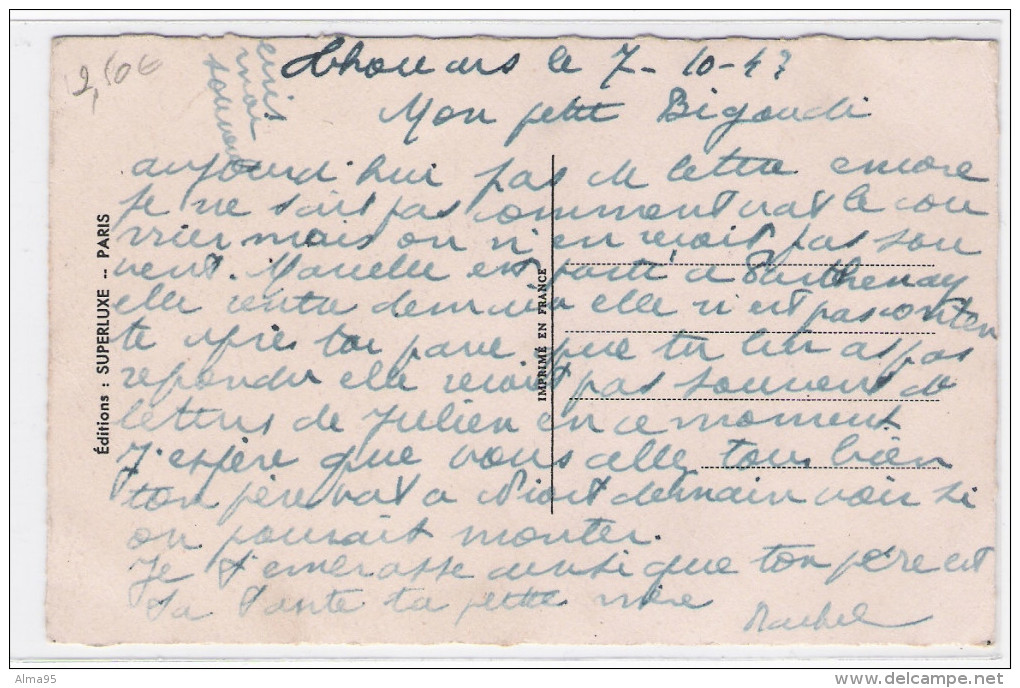 2,50€
ecris
moi
souvent
Thouars le 7-10-47
Mon petit Bigoudi
aujourd'hui pas de lettre encore
je ne sait pas comment vat le cou
rrier mais on n'en recoit pas sou
vent. Marcelle est parti a Parthenay
elle rentre demain elle n'est pas conten
te apres toi parce que tu lui as pas
repondu elle recoit pas souvent de
lettres de Julien en ce moment
J'espère que vous allez tous bien
ton père vat a Niort demain voir si
on pourait monter.
Je t'embrasse ainsi que ton père et
ta petite mère
Rachel
Éditions : SUPERLUXE -- PARIS
IMPRIMÉ EN FRANCE
Alma95
www.delcampe.net